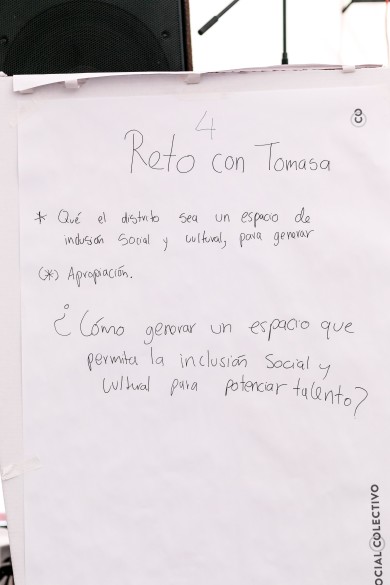 4
Reto con Tomasa
* Qué el distrito sea un espacio de
inclusión Social y cultural, para generar
(*) Apropiación.
¿Cómo generar un espacio que
permita la inclusión Social y
cultural para potenciar talento?
CO
SOCIAL COLECTIVO